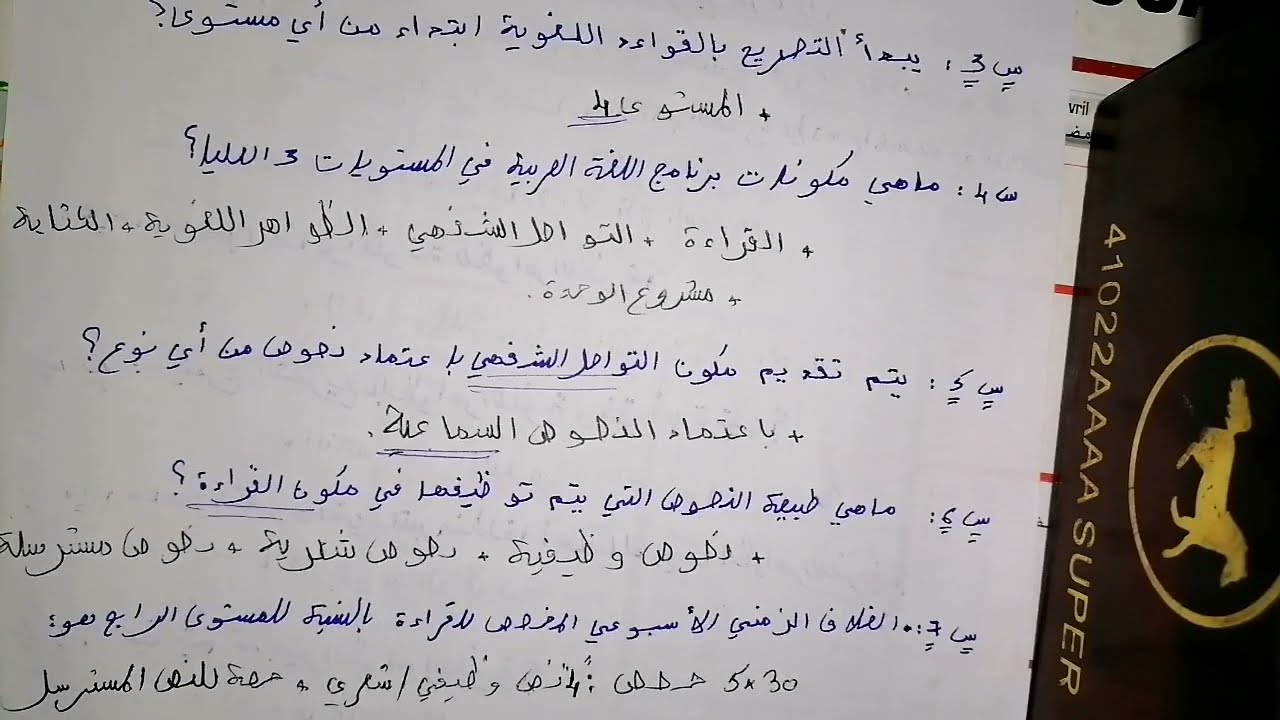 س3: يبدأ التصريح بالقواعد اللغوية ابتداء من أي مستوى؟
+ المستوى 4
س4: ماهي مكونات برنامج اللغة العربية في المستويات 3 العليا؟
+ القراءة + التواصل الشفهي + الظواهر اللغوية + الكتابة
+ مشروع الوحدة.
س5: يتم تقديم مكون التواصل الشفهي باعتماد نصوص من أي نوع؟
+ باعتماد النصوص السماعية.
س6: ماهي طبيعة النصوص التي يتم توظيفها في مكون القراءة؟
+ نصوص وظيفية + نصوص شعرية + نصوص مسترسلة
س7: الغلاف الزمني الأسبوعي المخصص للقراءة بالنسبة للمستوى الرابع هو:
5×30 حصص: 4 نص وظيفي/شعري + حصة للنص المسترسل
vril
41022AAAA SUPER